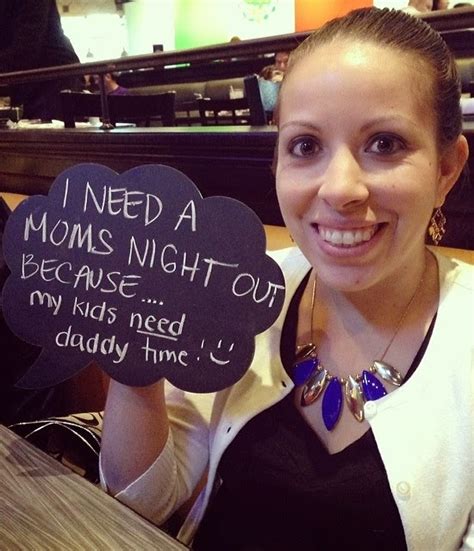 I NEED A
MOMS NIGHT OUT
BECAUSE....
my kids need
daddy time!